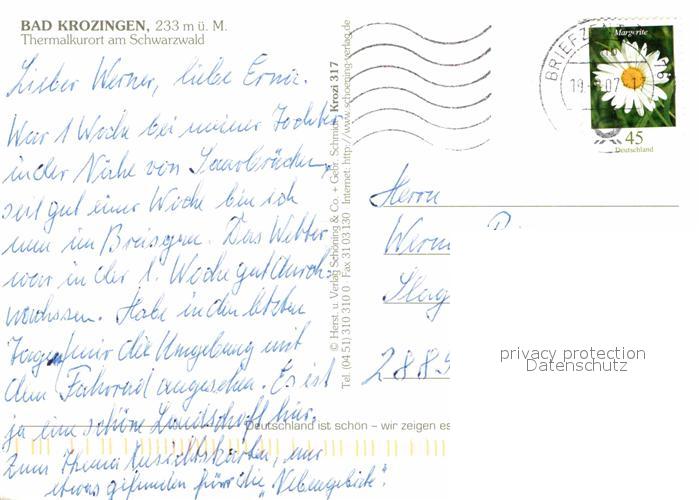 BAD KROZINGEN, 233 m ü. M.
Thermalkurort am Schwarzwald
Lieber Werner, liebe Erni.
War 1 Woche bei meiner Tochter
in der Nähe von Saarbrücken,
seit gut einer Woche bin ich
nun im Breisgau. Das Wetter
war in der 1. Woche gut durch-
wachsen. Habe in den letzten
Tagen mir die Umgebung mit
dem Fahrrad angesehen. Es ist
ja eine schöne Landschaft hier.
Zum Thema Ansichtskarten, nur
etwas gefunden fürr die "Nebengebiete".
Deutschland ist schön – wir zeigen es
© Herst. u. Verlag Schöning & Co. + Gebr. Schmidt Krozi 317
Tel. (04 51) 310 310 0 Fax 31 03 130 Internet: http://www.schoening-verlag.de
BRIEFZEN
19. 07
Margerite
45
Deutschland
Herrn
Wern
2885
privacy protection
Datenschutz